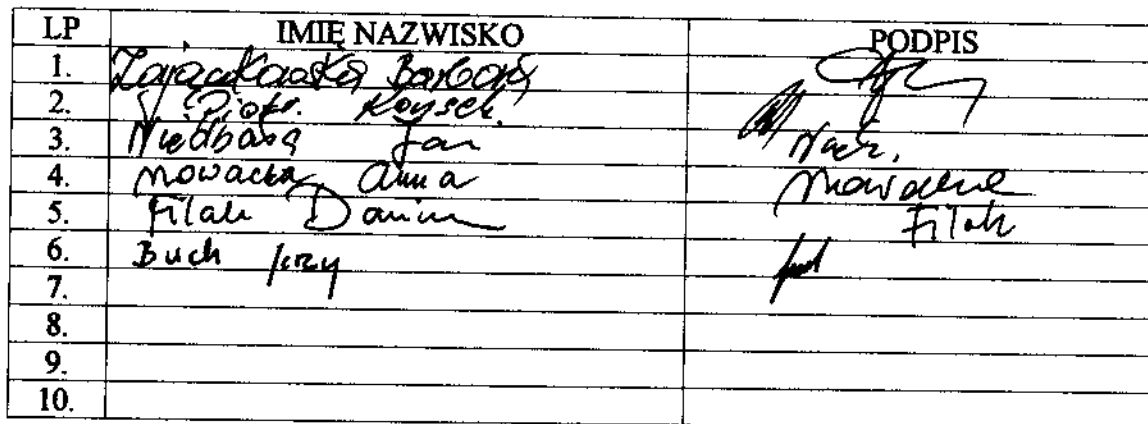 LP IMIĘ NAZWISKO PODPIS
1. Zajączkowska Barbara
2. Piotr
3. Niedbała Jan
4. Nowacka Anna Nowacka
5. Filak Filak
6. Buch Jerzy
7.
8.
9.
10.